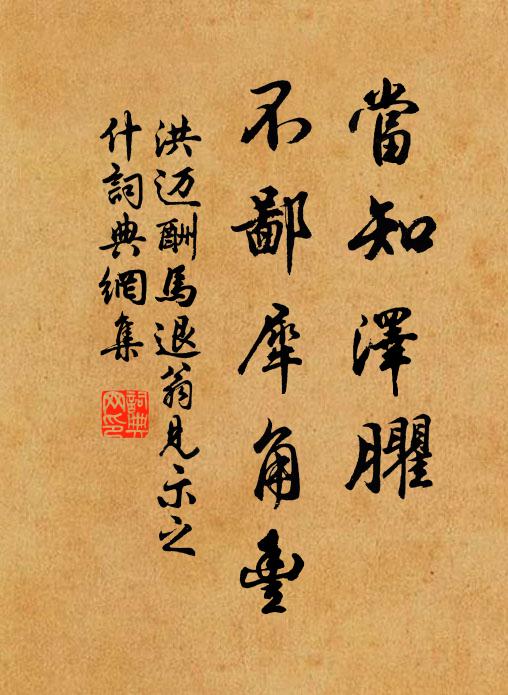 當知澤臞
不鄙犀角豐
洪迈酬馬退翁見示之
什詞典網集
詞典
网印